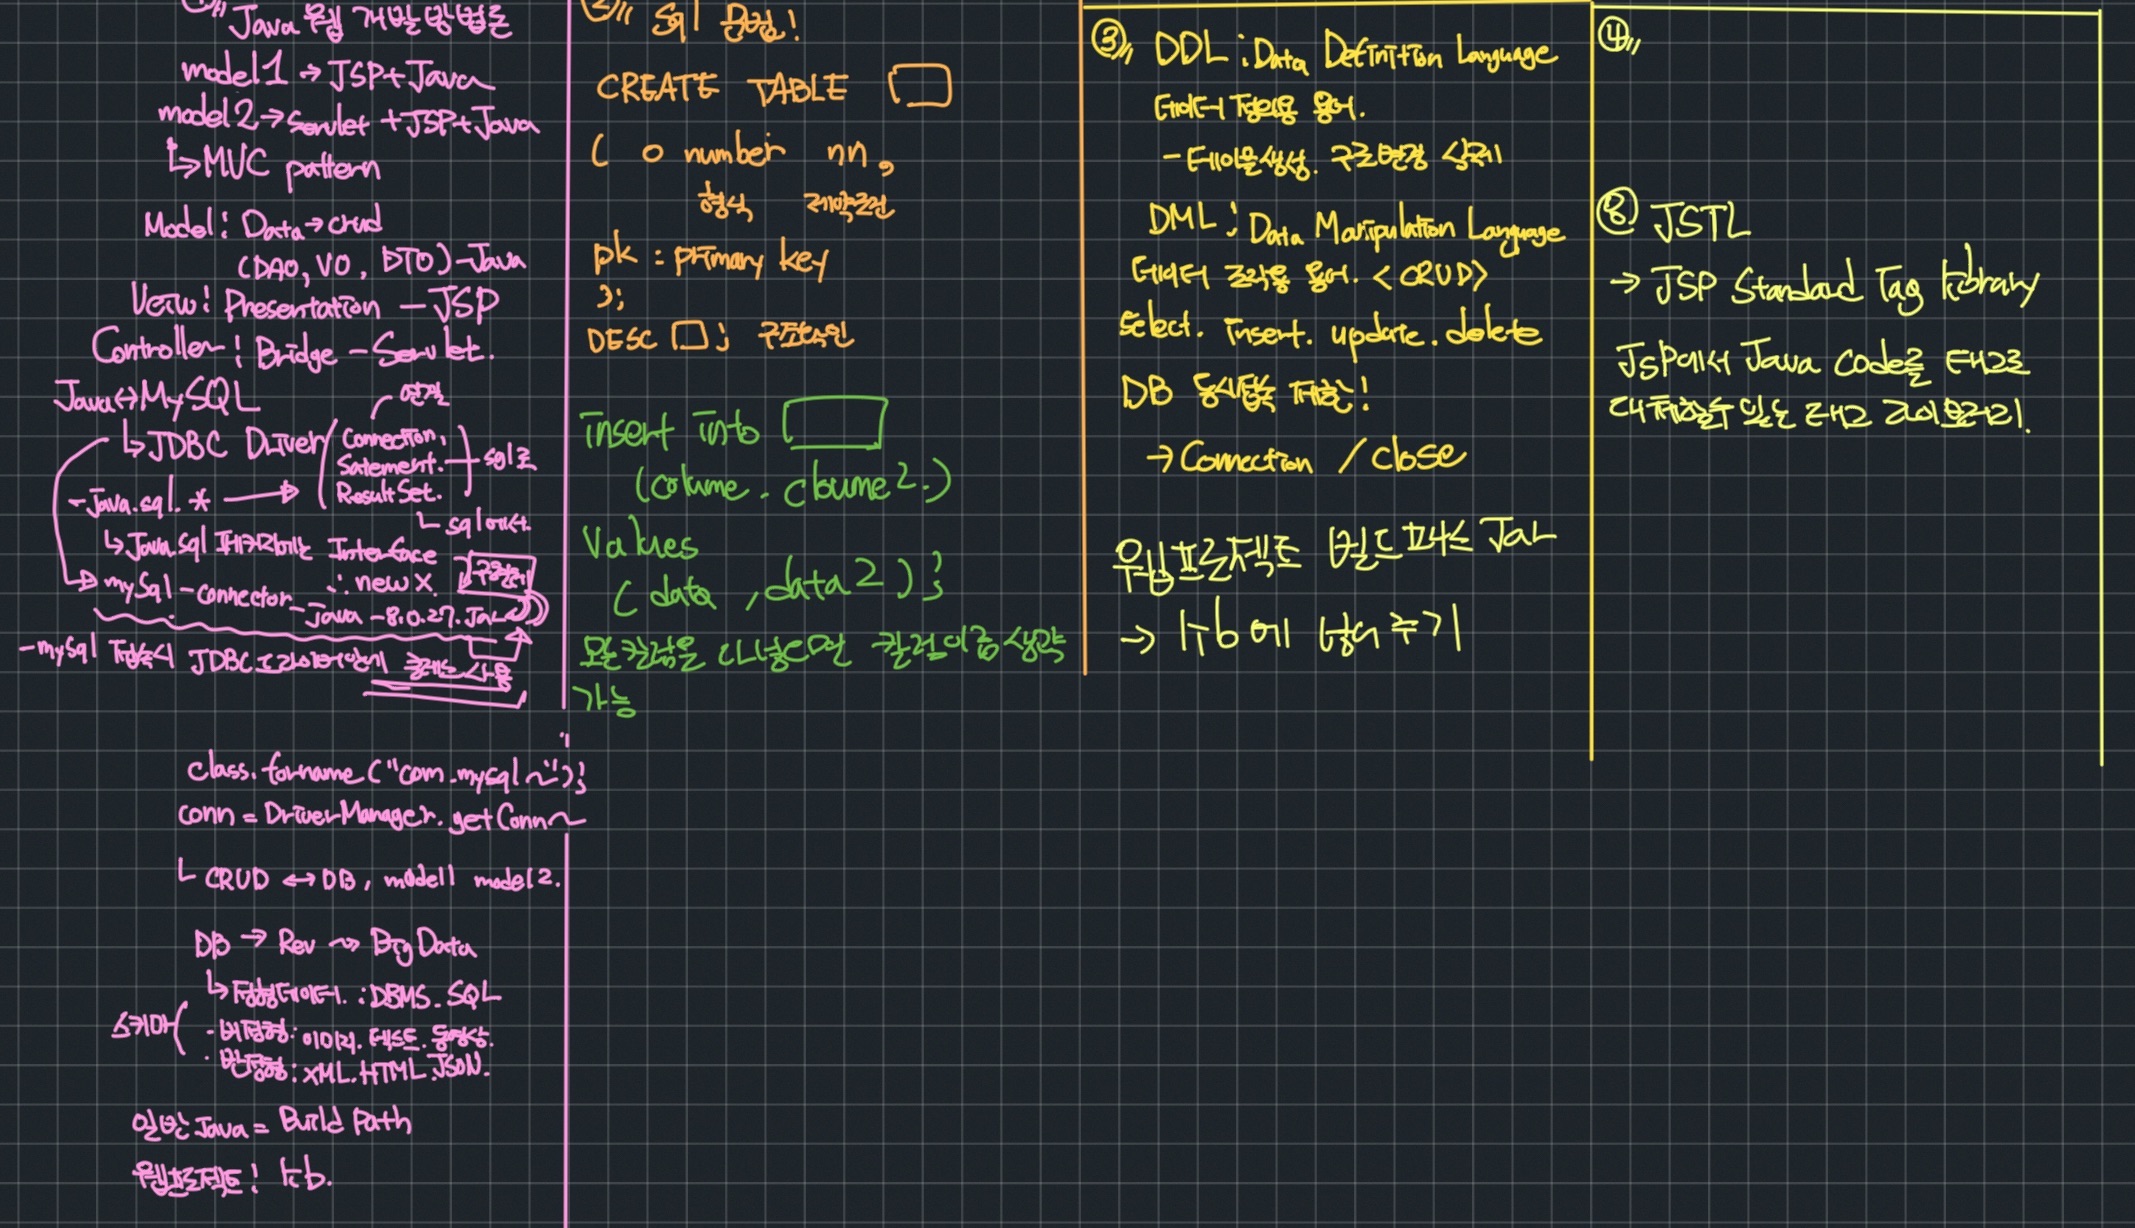 ①
Java 웹 개발 방법론
model1 → JSP+Java
model2→Servlet+JSP+Java
↳MVC pattern
Model: Data→crud
(DAO, VO, DTO)-Java
View: Presentation - JSP
Controller: Bridge - Servlet.
Java↔MySQL
연결
↳JDBC Driver
(Connection,
Satement.
ResultSet.)
sql로
-Java.sql.* →
sql에서
↳Java.sql 패키지에는 Interface
∴ new X.
→mySql-connector-Java-8.0.27.Jar
-mySql 접속시 JDBC드라이버안에 클래스사용
class.forname("com.mysql~");
conn = DriverManager.getConn~
└ CRUD ↔ DB, model1 model2.
DB → Rev ~> Big Data
↳정형데이터.:DBMS.SQL
스키마(
·비정형: 이미지. 텍스트. 동영상.
·반정형: XML.HTML.JSON.
일반 Java = Build Path
웹프로젝트! lib.
②
Sql 문법!
CREATE TABLE
( o number nn,
형식 제약조건
pk : primary key
);
DESC ; 구조확인
insert into
(colume. cloume2.)
Values
(data, data2);
모든컬럼을 다넣으면 컬럼이름생략
가능
③ DDL : Data Definition Language
데이터 정의용 용어.
-테이블생성. 구조변경 삭제
DML : Data Manipulation Language
데이터 조작용 용어. <CRUD>
Select. insert. update. delete
DB 동시접속 제한!
→ Connection / close
웹프로젝트 빌드패스 Jar
→ lib에 넣어주기
④
⑧ JSTL
→ JSP Standard Tag library
JSP에서 Java Code를 태그로
대체할수 있는 태그 라이브러리.